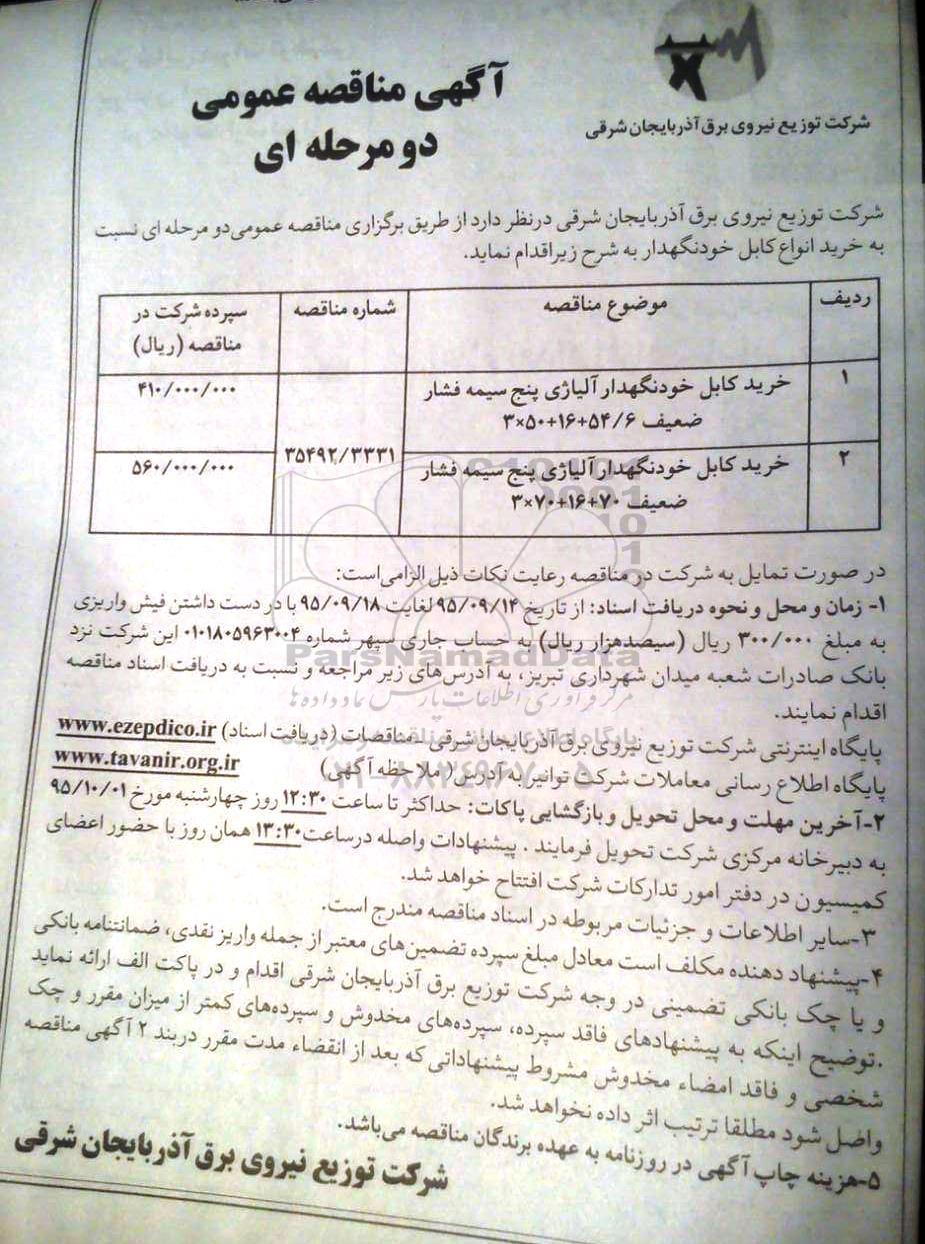 شرکت توزیع نیروی برق آذربایجان شرقی
آگهی مناقصه عمومی
دو مرحله ای
شرکت توزیع نیروی برق آذربایجان شرقی درنظر دارد از طریق برگزاری مناقصه عمومی دو مرحله ای نسبت
به خرید انواع کابل خودنگهدار به شرح زیراقدام نماید.
ردیف موضوع مناقصه شماره مناقصه سپرده شرکت در
مناقصه (ریال)
۱ خرید کابل خودنگهدار آلیاژی پنج سیمه فشار ۴۱۰/۰۰۰/۰۰۰
ضعیف ۵۴/۶+۱۶+۵۰×۳
۳۵۴۹۲/۳۳۳۱
۲ خرید کابل خودنگهدار آلیاژی پنج سیمه فشار ۵۶۰/۰۰۰/۰۰۰
ضعیف ۷۰+۱۶+۷۰×۳
در صورت تمایل به شرکت در مناقصه رعایت نکات ذیل الزامی‌است:
۱- زمان و محل و نحوه دریافت اسناد: از تاریخ ۹۵/۰۹/۱۴ لغایت ۹۵/۰۹/۱۸ با در دست داشتن فیش واریزی
به مبلغ ۳۰۰/۰۰۰ ریال (سیصدهزار ریال) به حساب جاری سپهر شماره ۰۱۰۱۸۰۵۹۶۳۰۰۴ این شرکت نزد
بانک صادرات شعبه میدان شهرداری تبریز، به آدرس‌های زیر مراجعه و نسبت به دریافت اسناد مناقصه
اقدام نمایند.
پایگاه اینترنتی شرکت توزیع نیروی برق آذربایجان شرقی - مناقصات (دریافت اسناد) www.ezepdico.ir
پایگاه اطلاع رسانی معاملات شرکت توانیر به آدرس( ملاحظه آگهی) www.tavanir.org.ir
۲-آخرین مهلت و محل تحویل و بازگشایی پاکات: حداکثر تا ساعت ۱۲:۳۰ روز چهارشنبه مورخ ۹۵/۱۰/۰۱
به دبیرخانه مرکزی شرکت تحویل فرمایند . پیشنهادات واصله درساعت ۱۳:۳۰ همان روز با حضور اعضای
کمیسیون در دفتر امور تدارکات شرکت افتتاح خواهد شد.
۳-سایر اطلاعات و جزئیات مربوطه در اسناد مناقصه مندرج است.
۴-پیشنهاد دهنده مکلف است معادل مبلغ سپرده تضمین‌های معتبر از جمله واریز نقدی، ضمانتنامه بانکی
و یا چک بانکی تضمینی در وجه شرکت توزیع برق آذربایجان شرقی اقدام و در پاکت الف ارائه نماید
.توضیح اینکه به پیشنهادهای فاقد سپرده، سپرده‌های مخدوش و سپرده‌های کمتر از میزان مقرر و چک
شخصی و فاقد امضاء مخدوش مشروط پیشنهاداتی که بعد از انقضاء مدت مقرر دربند ۲ آگهی مناقصه
واصل شود مطلقا ترتیب اثر داده نخواهد شد.
۵-هزینه چاپ آگهی در روزنامه به عهده برندگان مناقصه می‌باشد.
شرکت توزیع نیروی برق آذربایجان شرقی
ParsNamadData
مرکز فرآوری اطلاعات پارس نماد داده ها